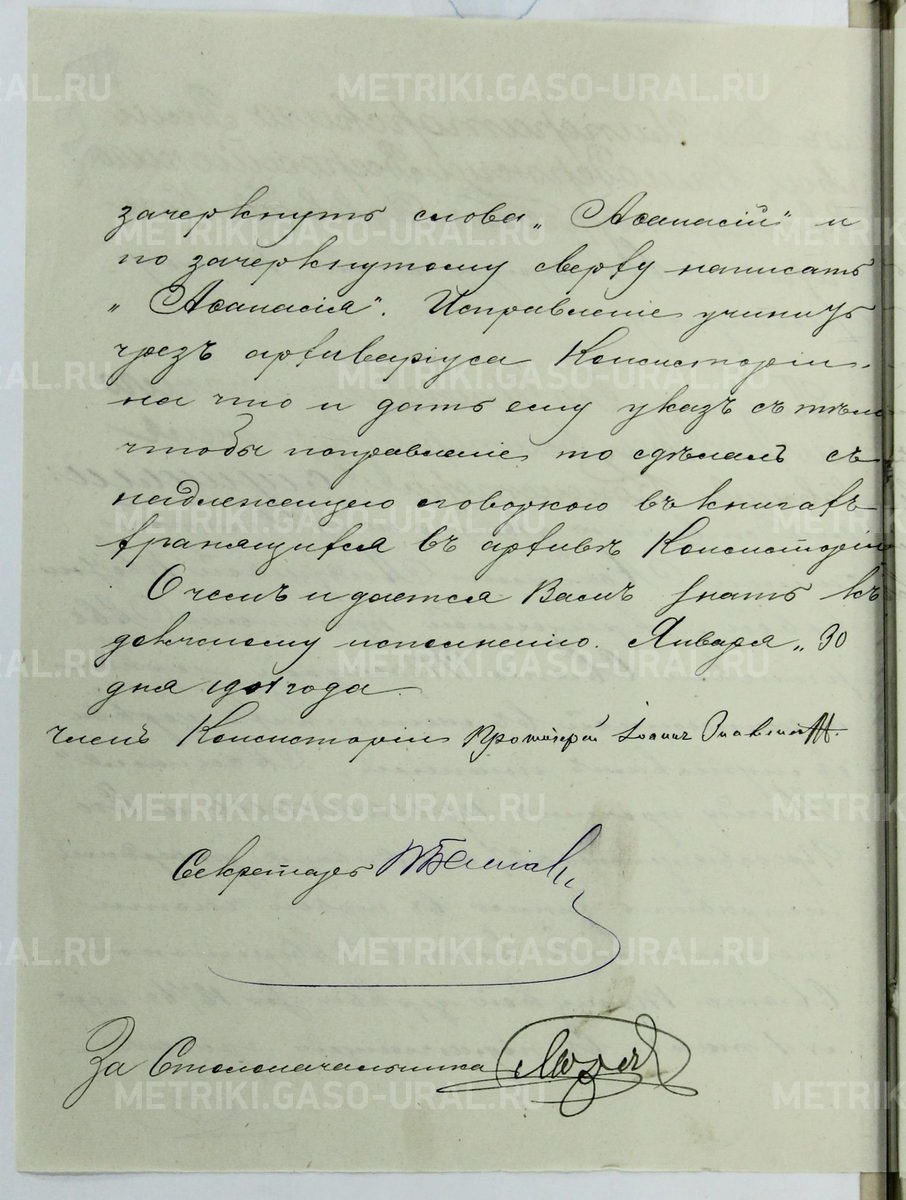 зачеркнуть слова „Аѳанасій" и
по зачеркнутому сверху написать
„Аѳанасія". Исправленіе учинить
чрезъ архиваріуса Консисторіи,
на что и дать ему указъ съ тѣмъ
чтобы поправленіе то сдѣлалъ съ
надлежащею оговоркою въ книгахъ
хранящихся въ архивѣ Консисторіи
О чемъ и дается Вамъ знать къ
должному исполненію. Января „30
дня 1901 года.
Членъ Консисторіи Протоіерей Іоаннъ
Секретарь
За Столоначальника
METRIKI.GASO-URAL.RU